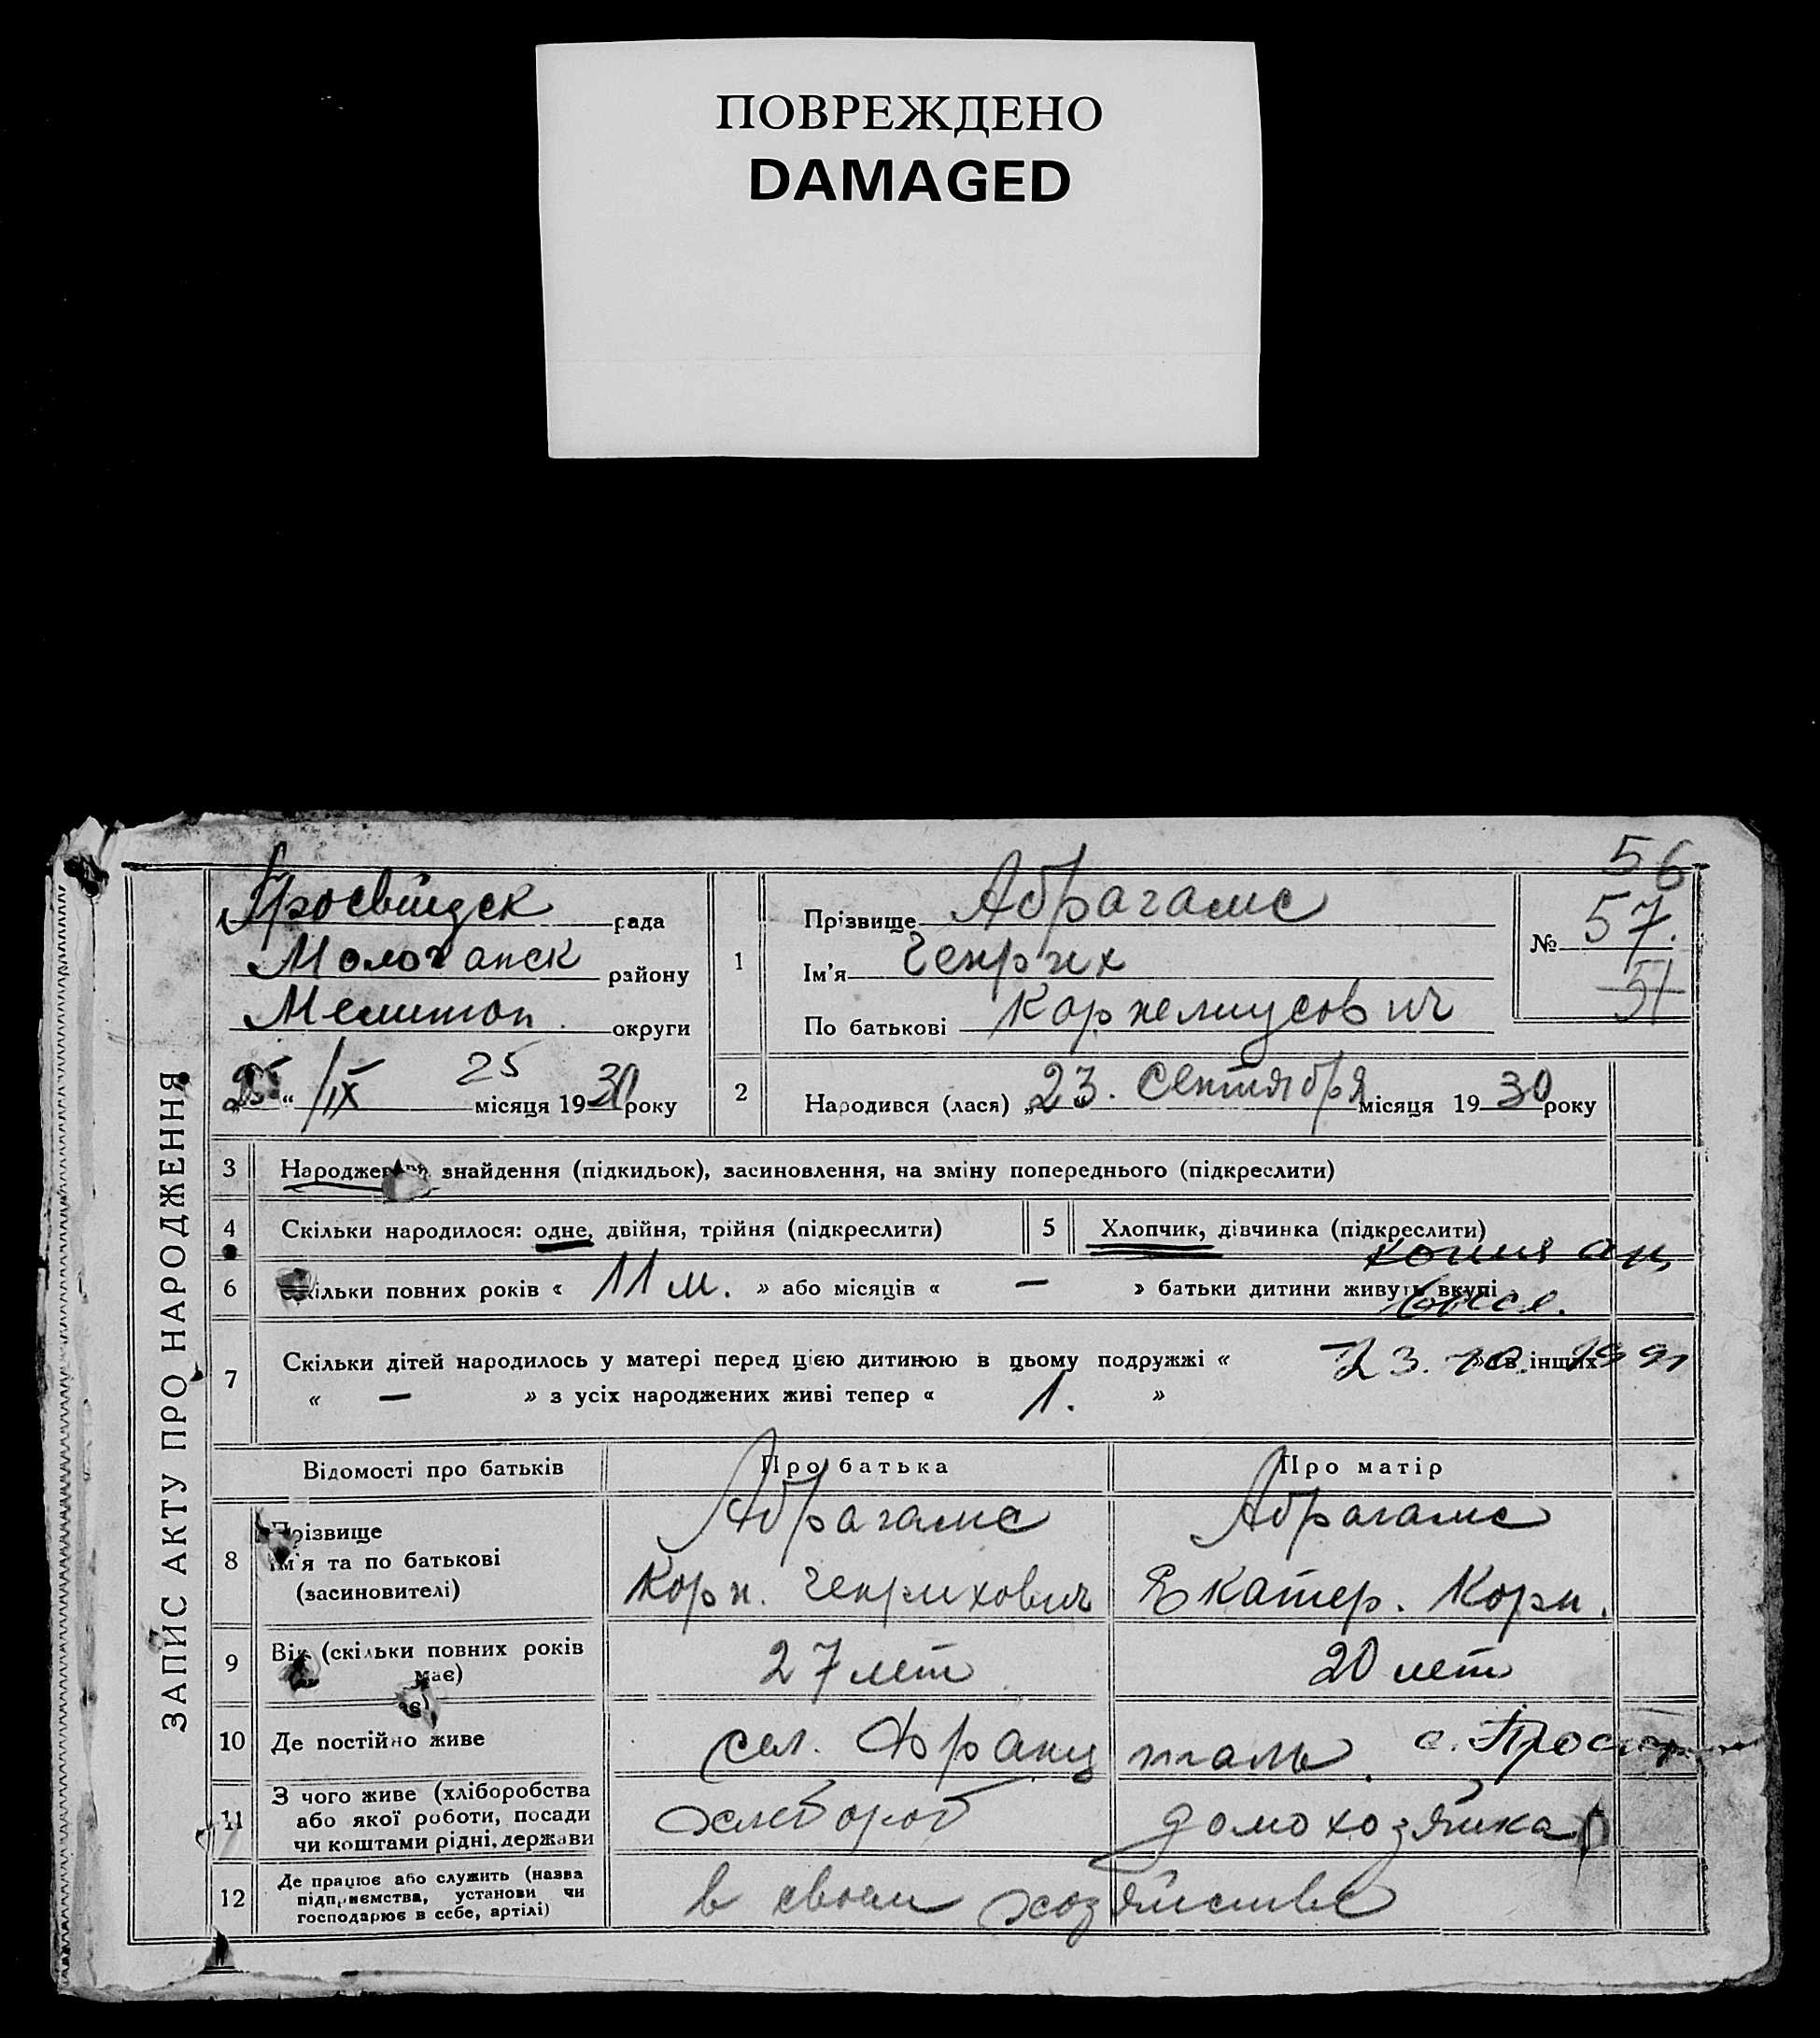 ПОВРЕЖДЕНО
DAMAGED
56
ЗАПИС АКТУ ПРО НАРОДЖЕННЯ
рада
Молочанск району
Мелитоп. округи
25 „ “ /IX місяця 1930 року
1
Прізвище Абрагамс
Ім'я Генрих
По батькові Корнелиусович
№ 57.
51
2
Народився (лася) „23. Сентября місяця 1930 року
3 Народження знайдення (підкидьок), засиновлення, на зміну попереднього (підкреслити)
4 Скільки народилося: одне, двійня, трійня (підкреслити)
5 Хлопчик, дівчинка (підкреслити)
6 Скільки повних років « 11 м. » або місяців « — » батьки дитини живуть вкупі
7 Скільки дітей народилось у матері перед цією дитиною в цьому подружжі « » в інших
« — » з усіх народжених живі тепер « 1. »
Відомості про батьків
Про батька
Про матір
8 Прізвище
ім'я та по батькові
(засиновителі)
Абрагамс
Корн. Генрихович
Абрагамс
Екатер. Корн.
9 Вік (скільки повних років
має)
27 лет
20 лет
10 Де постійно живе
сел. Францталь.
11 З чого живе (хліборобства
або якої роботи, посади
чи коштами рідні, держави
хлебороб
домохозяйка
12 Де працює або служить (назва
підприємства, установи чи
господарює в себе, артілі)
в своем хозяйстве